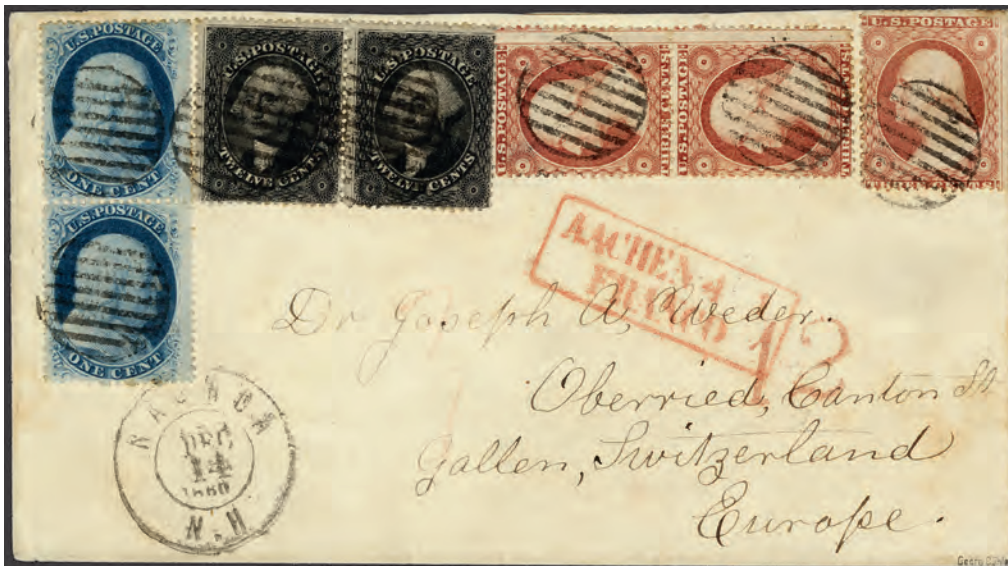 U.S. POSTAGE
ONE CENT
U.S. POSTAGE
ONE CENT
U.S. POSTAGE
TWELVE CENTS
U.S. POSTAGE
TWELVE CENTS
U.S. POSTAGE
THREE CENTS
U.S. POSTAGE
THREE CENTS
U.S. POSTAGE
THREE CENTS
AACHEN
FRANCO
Dr Joseph A. Weder.
Oberried, Canton St
Gallen, Switzerland
Europe.
NASHUA
DEC
14
1860
N.H